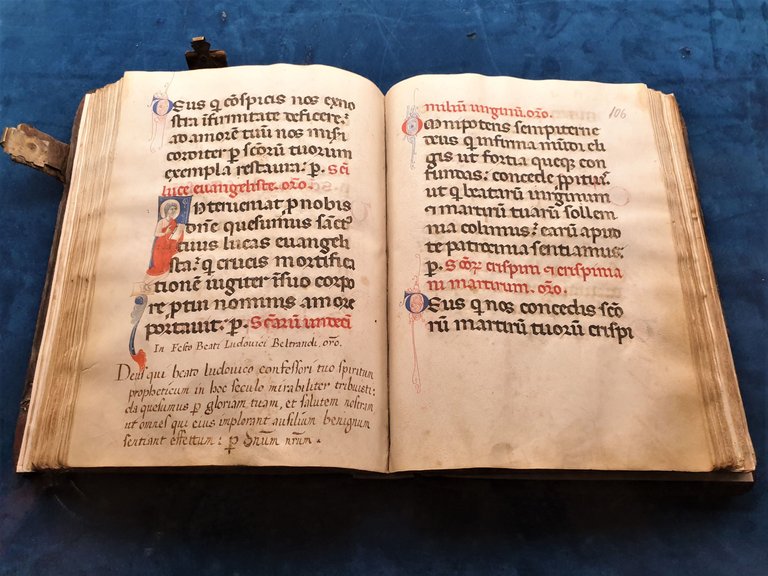 Deus q̄ cōspicis nos ex n̄o
stra īfirmitate deficere:
ad amorē tuū nos misi
corditer p̄ scōrum tuorum
exempla restaura: p. Scī
luce euangeliste. orō.
Interueniat p̄ nobis
dn̄e quesumus sanct⁹
tuus lucas euangeli
sta: q̄ crucis mortifica
tionē iugiter ī suo corpo
re p̄ tui nominis amore
portauit: p. Scārum undeci
In Festo Beati Ludovici Beltrandi, orō.
Deus qui beato Ludovico confessori tuo spiritum
propheticum in hoc seculo mirabiliter tribuisti:
da quesumus p̄ gloriam tuam, et salutem nostram
ut omnes qui eius implorant auxilium benignum
sentiant effectum: p̄ Dnūm nrūm.
106
miliū uirginū. orō.
Omnipotens sempiterne
deus q̄ infirma mūdi eli
gis ut fortia queque con
fundas: concede ppitius:
ut q̄ beatarū uirginum
⁊ martirū tuarū sollem
nia colimus: earū apud
te patrocinia sentiamus:
p. Scōr crispini ⁊ crispinia
ni martirum. orō.
Deus q̄ nos concedis scō
rū martirū tuorū crispi